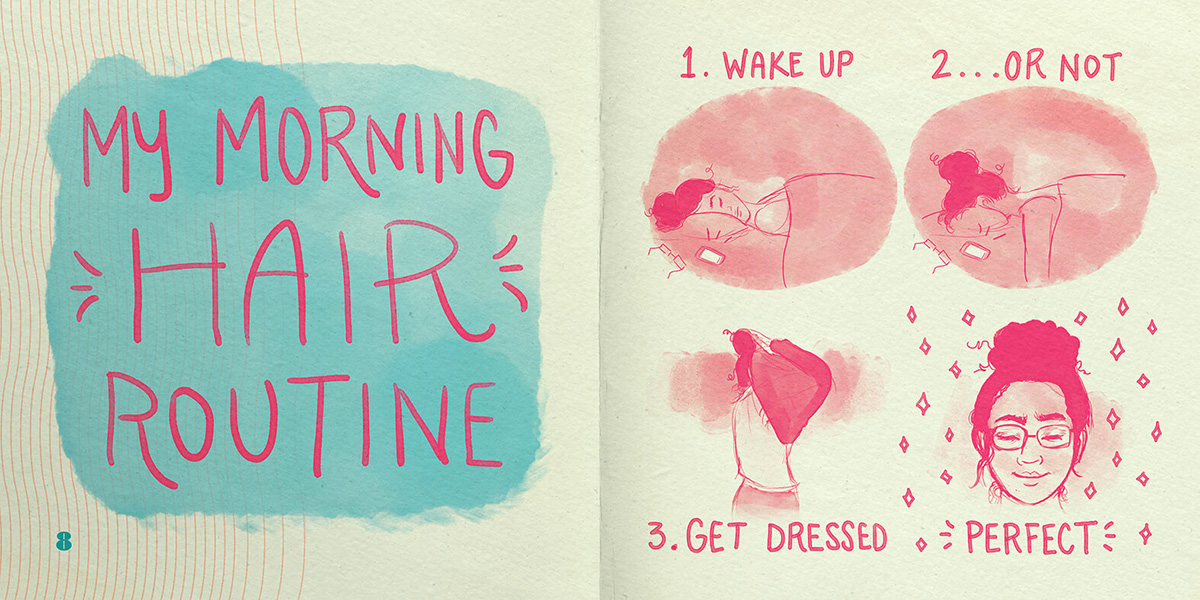 MY MORNING
HAIR
ROUTINE
8
1. WAKE UP
2...OR NOT
3. GET DRESSED
PERFECT